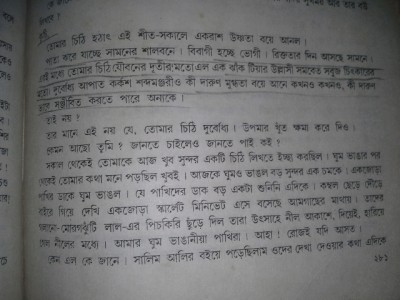 তোমার চিঠি হঠাৎ এই শীত-সকালে একরাশ উষ্ণতা বয়ে আনল।
পাতা ঝরে যাচ্ছে সামনের শালবনে। বিবাগী হচ্ছে ভোগী। রিক্ততার দিন আসছে সামনে।
এরই মধ্যে তোমার চিঠি যৌবনের দূতীর মতো এল এক ঝাঁক টিয়ার উল্লাসী সমবেত সবুজ চিৎকারের
মতো। দুর্বোধ্য আপাত কর্কশ শব্দমঞ্জরীও কী দারুণ মুগ্ধতা বয়ে আনে কখনও কখনও, কী দারুণ
ভাবে সঞ্জীবিত করতে পারে অন্যকে।
তাই নয়?
তার মানে এই নয় যে, তোমার চিঠি দুর্বোধ্য। উপমার খুঁত ক্ষমা করে দিও।
কেমন আছো তুমি? জানতে চাইলেও জানতে পাই কই?
সকাল থেকেই তোমাকে আজ খুব সুন্দর একটি চিঠি লিখতে ইচ্ছা করছিল। ঘুম ভাঙার পর
থেকেই তোমার কথা মনে পড়ছিল খুবই। আজকে ঘুমও ভাঙল বড় সুন্দর এক চমকে। একজোড়া
পাখির ডাকে ঘুম ভাঙল। যে পাখিদের ডাক বড় একটা শুনিনি এদিকে। কম্বল ছেড়ে দৌড়ে
বাইরে গিয়ে দেখি একজোড়া স্কার্লেট মিনিভেট এসে বসেছে আমগাছের মাথায়। তাদের
লাল-এর পিচকিরি ছুঁড়ে দিল তারা উৎসাহে নীল আকাশে, দিয়েই, হারিয়ে
গেল নীলের মধ্যে। আমার ঘুম ভাঙানীয়া পাখিরা। আহা! রোজই যদি আসত।
কেন এল কে জানে। সালিম আলির বইয়ে পড়েছিলাম ওদের দেখা দেওয়ার কথা এদিকে
২৮১